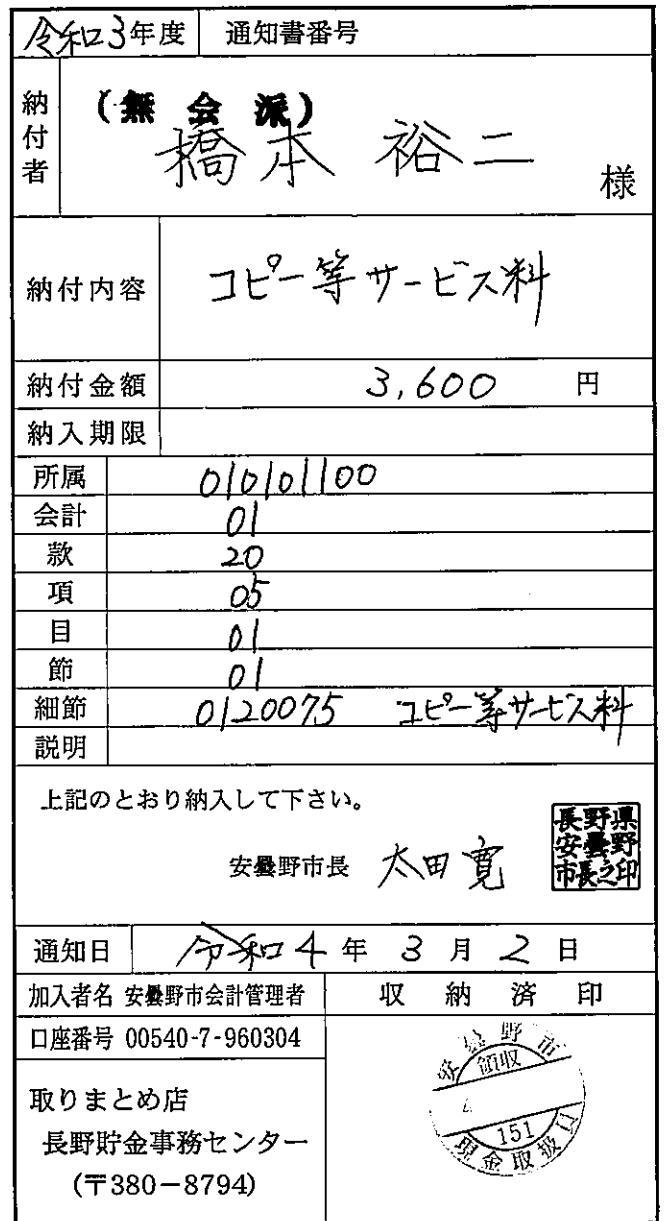 令和3年度 通知書番号
納付者 (無会派)
橋本 裕二 様
納付内容 コピー等サービス料
納付金額 3,600 円
納入期限
所属 010101100
会計 01
款 20
項 05
目 01
節 01
細節 0120075 コピー等サービス料
説明
上記のとおり納入して下さい。
安曇野市長 太田寛
長野県
安曇野
市長之印
通知日 令和4年3月2日
加入者名 安曇野市会計管理者 収納済印
口座番号 00540-7-960304
取りまとめ店
長野貯金事務センター
(〒380-8794)
安曇野市
領収
151
現金取扱口